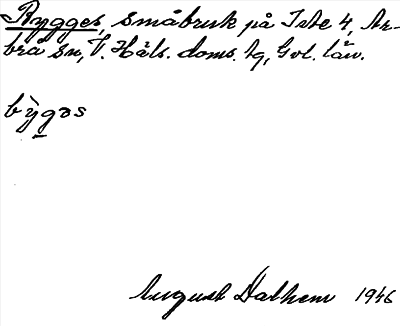 Rygges, småbruk på Iste 4, Ar-
brå sn, V. Häls. doms. tg, Gvl. län.
bỳgəs
August Dalhem 1946